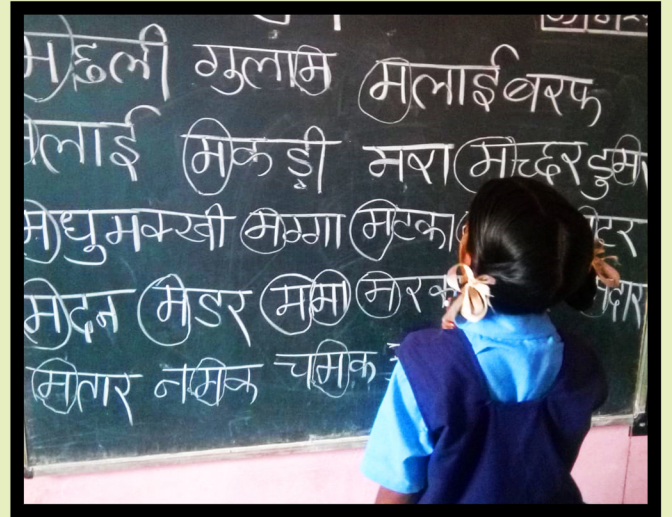 मछली गुलाम मलाईबरफ
मलाई मकड़ी मरा मच्छर डुम
मधुमक्खी मग्गा मटका
मदन मडर ममा
मतार नमक चमक